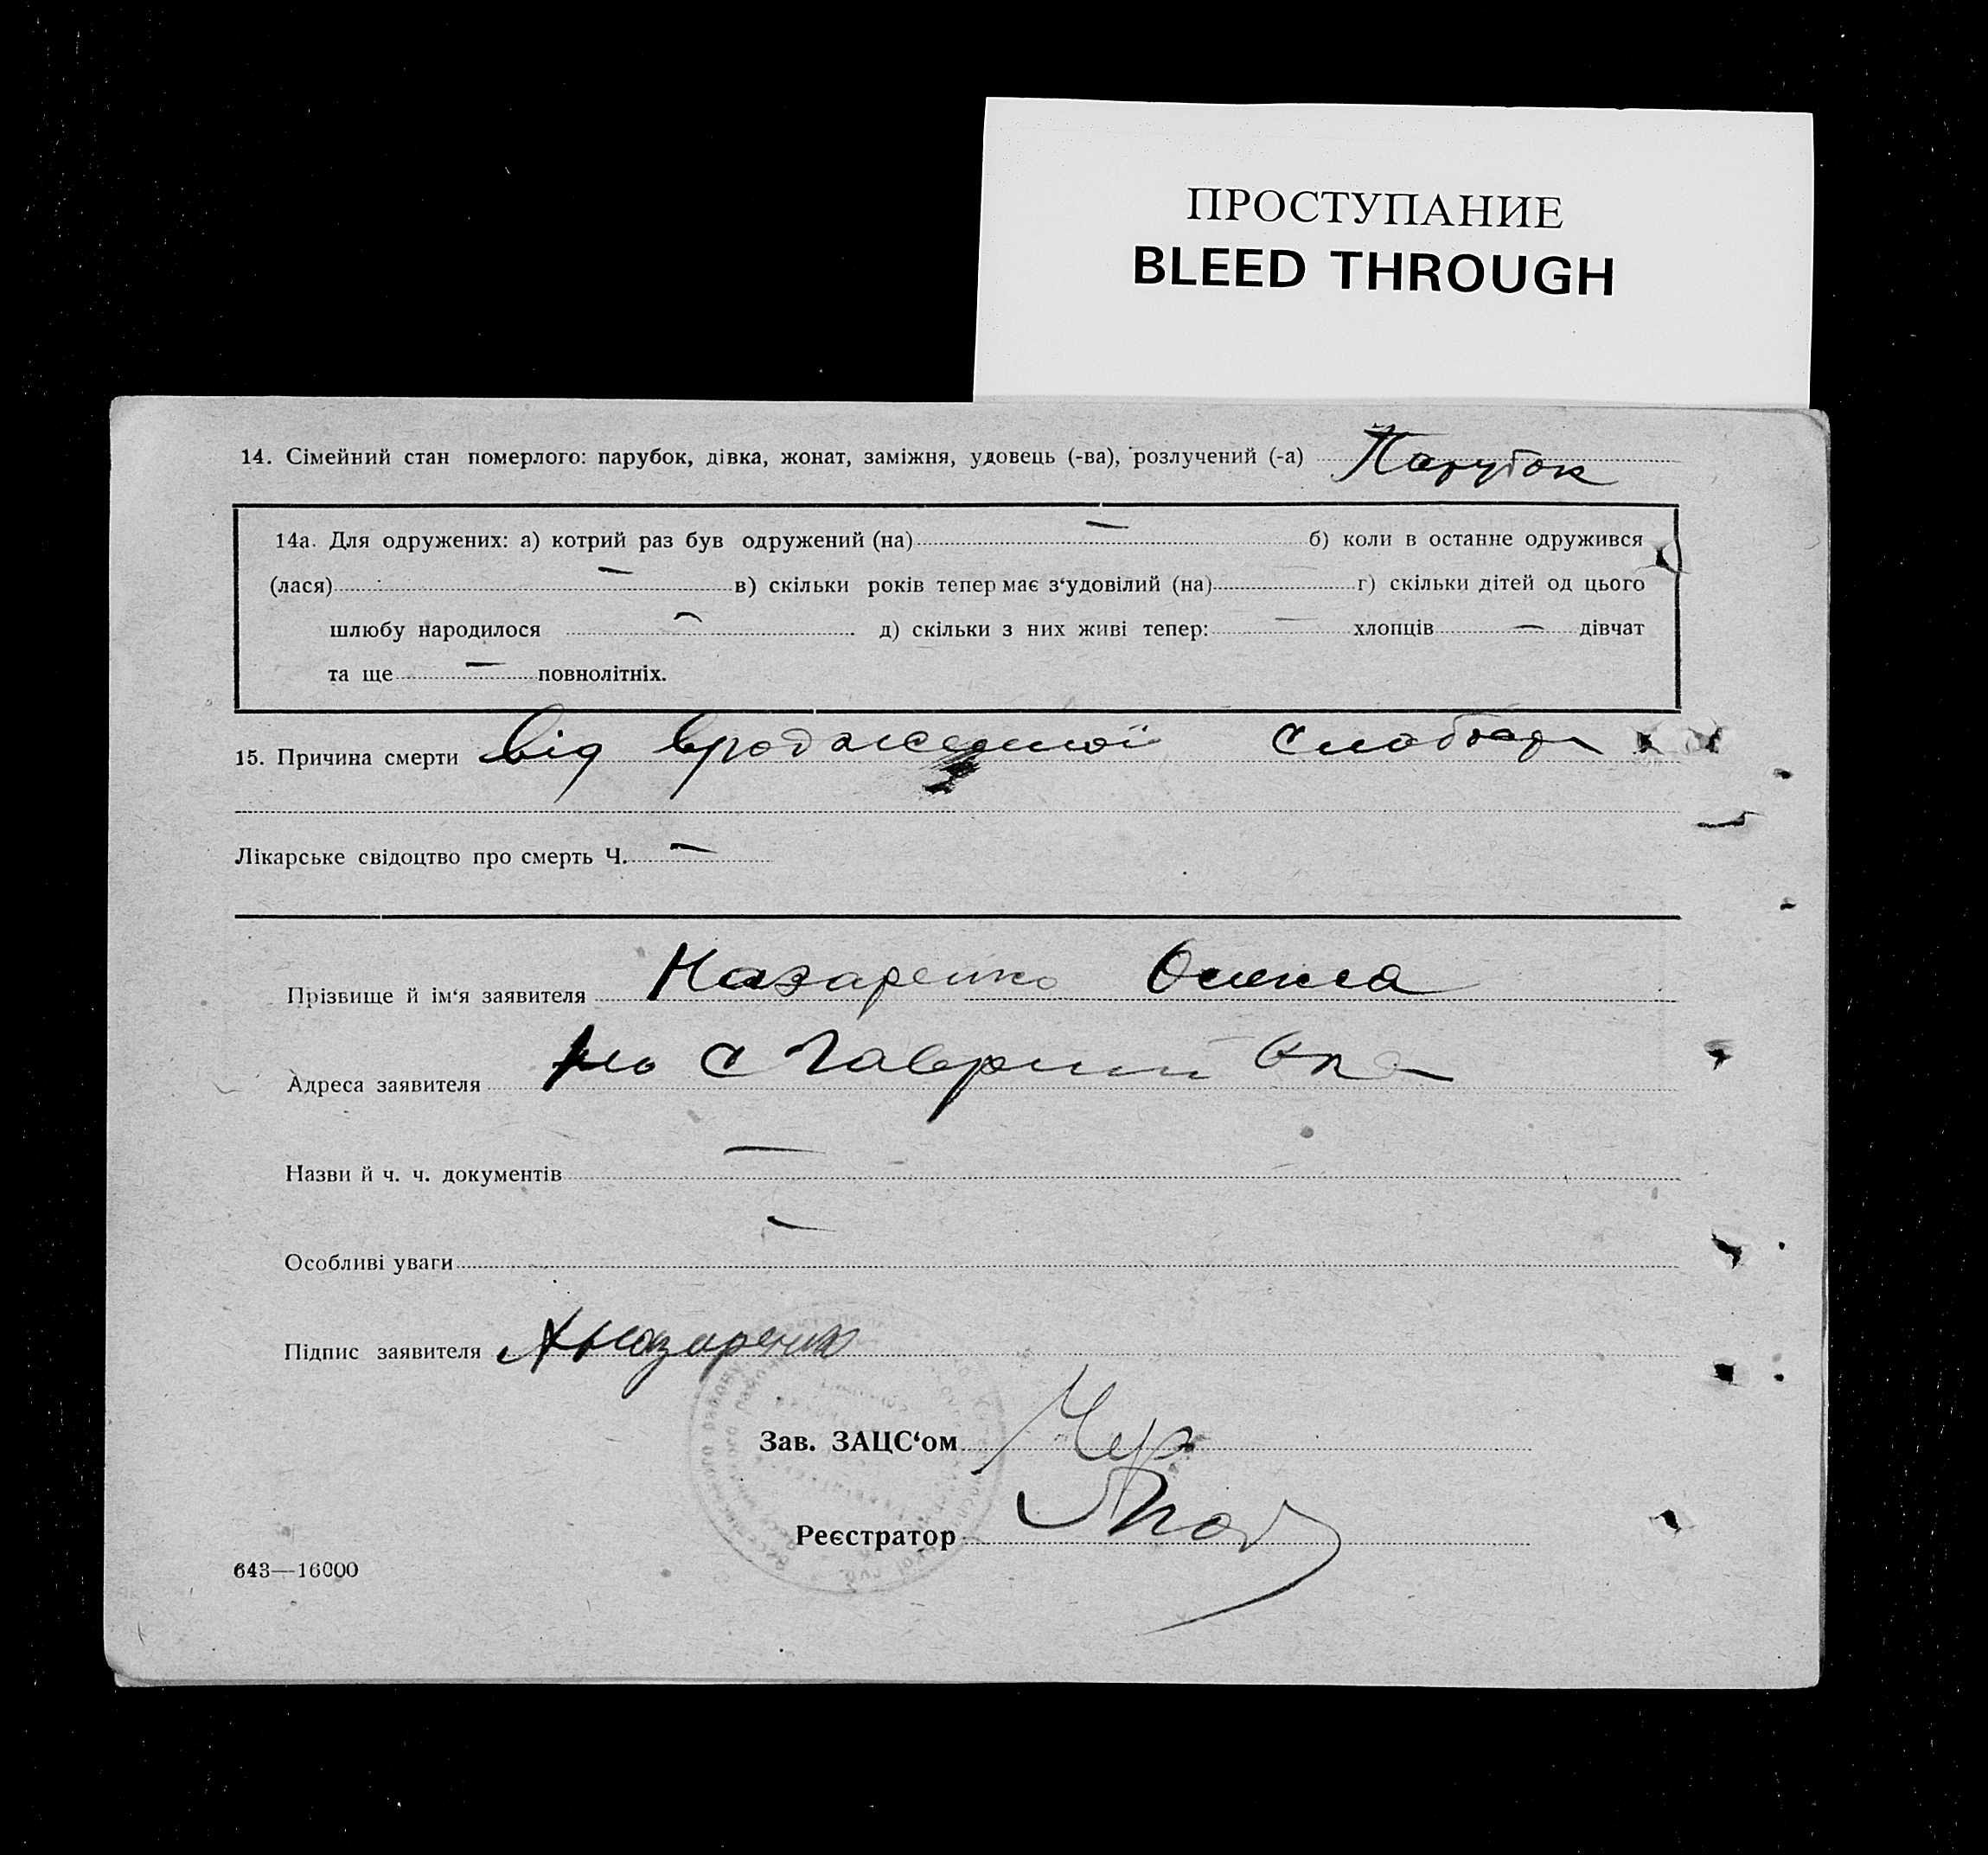 ПРОСТУПАНИЕ
BLEED THROUGH
14. Сімейний стан померлого: парубок, дівка, жонат, заміжня, удовець (-ва), розлучений (-а) Парубок
14а. Для одружених: а) котрий раз був одружений (на) — б) коли в останне одружився
(лася) — в) скільки років тепер має з‘удовілий (на) г) скільки дітей од цього
шлюбу народилося — д) скільки з них живі тепер: — хлопців — дівчат
та ще — повнолітніх.
15. Причина смерти Від
Лікарське свідоцтво про смерть Ч. —
Прізвище й ім‘я заявителя Назаренко
Адреса заявителя с Гаврилівка
Назви й ч. ч. документів —
Особливі уваги —
Підпис заявителя
Зав. ЗАЦС‘ом
Реєстратор
643—16000